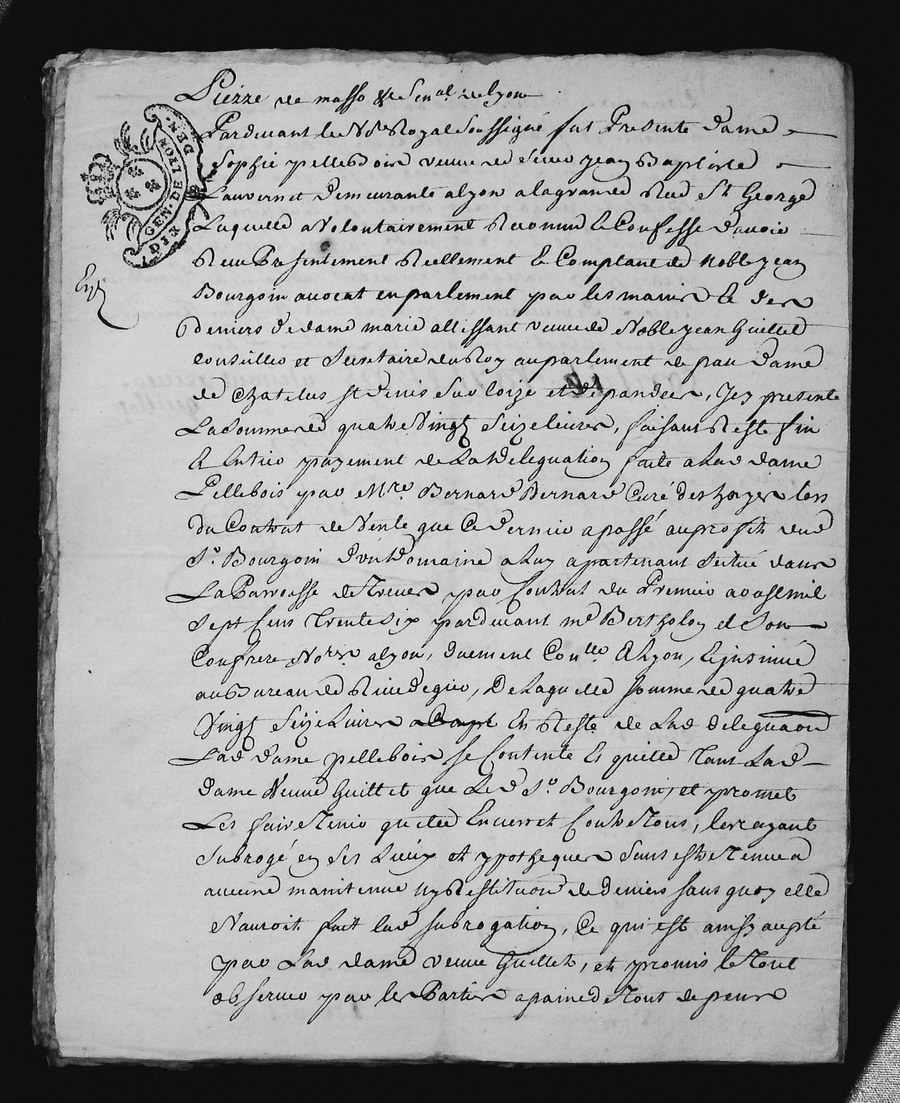 Pierre de masso & Senal de Lyon
GEN. DE LION
DIX DEN.
Pardevant le Nore Royal Soussigné fut Presente Dame
Sophie pelleBois veuve de Sieur jean Baptiste
Lauvernet Demeurante a lyon a la grande Rue St George
Laquelle a Volontairement Reconnu & Confesse D'avoir
Reçu Presentement Reellement & Comptant de Noble jean
Bourgoin avocat en parlement par les mains & des
Deniers de dame marie allissant veuve de Noble jean Guillet
Conseiller et Secretaire du Roy au parlement de pau Dame
de Chatelus St denis Sur Loize et de pandere, Icy presente
La Somme de quatre Vingt Seize livres, faisant Reste fin
& Entier payement de La Deleguation faite a Lad dame
Pellebois par Mre Bernard Bernard Curé Des hayes lors
Du Contrat de Vente que Ce dernier a passé au profit dud
Sr Bourgoin D'un Domaine a luy apartenant Scitué dans
La Parroisse de Treves par Contrat du Premier aoust mil
Sept Cens Trente Six pardevant me Bertholon et Son
Confrere Nores a lyon, duement Conlle A Lyon, & jnsinué
au Bureau de Rive de gier, De Laquelle Somme de quatre
Vingt Seize Livres En Reste de Lad deleguaon
Lad dame pellebois se Contente Et quitte Tant Lad
Dame Veuve Guillet que Led Sr Bourgoin, et promet
Les faire Tenir quitte Envers et Contre Tous, les ayant
Subrogé en Ses Lieux et ypotheques Sans estre Tenue a
aucune maintenue ny Restitution de deniers sans quoy elle
N'auroit fait lad subrogation, Ce qui est ainsy accepté
par Lad dame veuve Guillet, et promis le Tout
observer par les Parties a paine de Tout depens